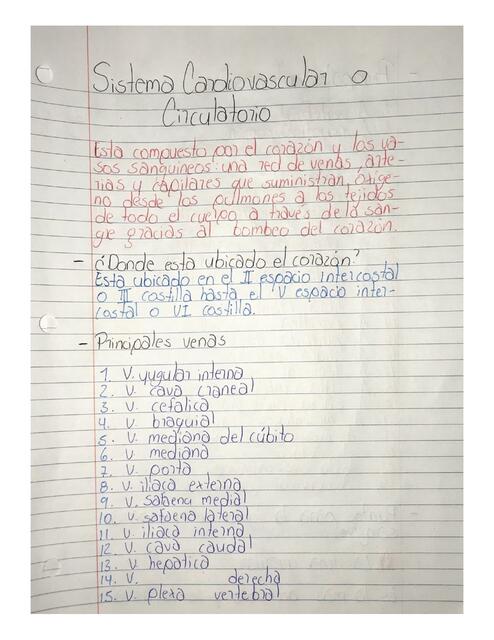 Sistema Cardiovascular o
Circulatorio
Esta compuesto por el corazón y los va-
sos sanguineos: una red de venas, arte-
rias y capilares que suministran, oxige-
no desde los pulmones a los tejidos
de todo el cuerpo a través de la san-
gre gracias al bombeo del corazón.
- ¿Donde esta ubicado el corazón?
Esta ubicado en el II espacio intercostal
o III costilla hasta el V espacio inter-
costal o VI costilla.
- Principales venas
1. V. yugular interna
2. V. cava craneal
3. V. cefalica
4. V. braquial
5. V. mediana del cúbito
6. V. mediana
7. V. porta
8. V. iliaca externa
9. V. safena medial
10. V. safaena lateral
11. V. iliaca interna
12. V. cava caudal
13. V. hepatica
14. V. derecha
15. V. plexa vertebral